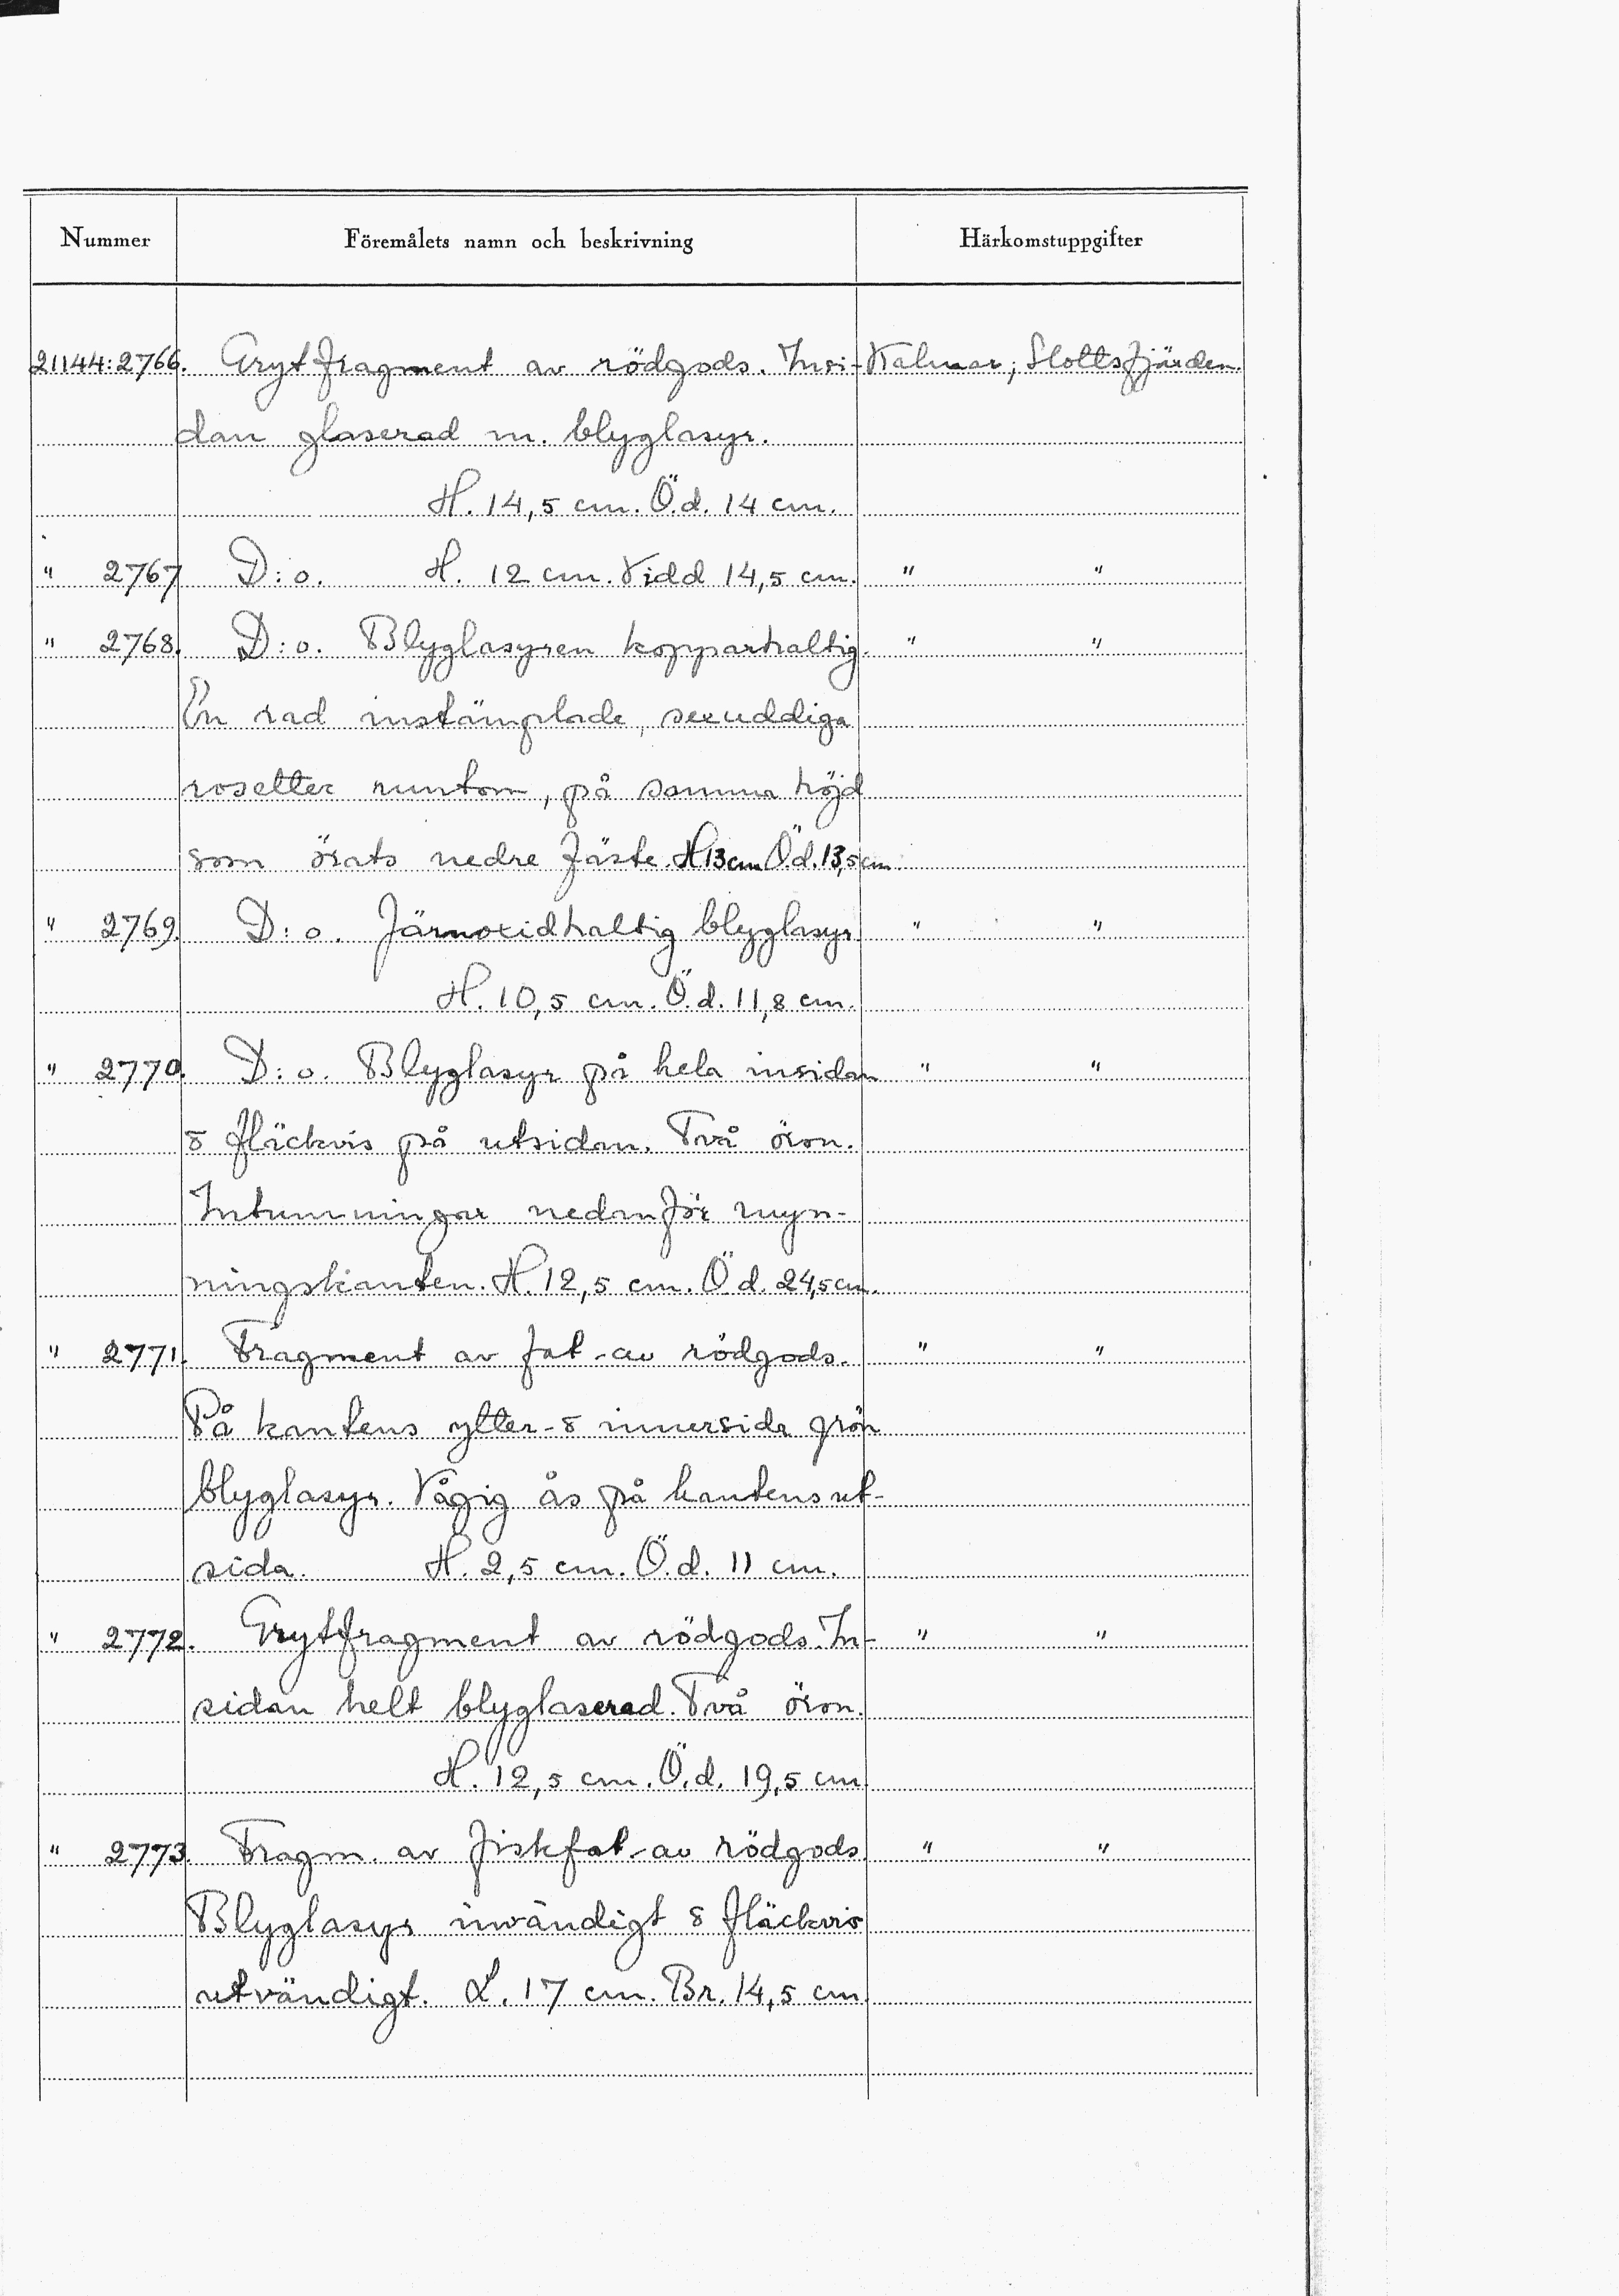 Nummer Föremålets namn och beskrivning Härkomstuppgifter
21144:2766. Grytfragment av rödgods. Insi- Kalmar; Slottsfjärden.
dan glaserad m. blyglasyr.
H. 14,5 cm. Ö.d. 14 cm.
" 2767 D:o. H. 12 cm. Vidd 14,5 cm. " "
" 2768. D:o. Blyglasyren kopparhaltig. " "
En rad instämplade, sexuddiga
rosetter runtom, på samma höjd
som örats nedre fäste. H 13 cm Ö.d. 13,5 cm.
" 2769. D:o. Järnoxidhaltig blyglasyr. " "
H. 10,5 cm. Ö.d. 11,8 cm.
" 2770. D:o. Blyglasyr på hela insidan " "
& fläckvis på utsidan. Två öron.
Intumningar nedanför myn-
ningskanten. H. 12,5 cm. Ö.d. 24,5 cm.
" 2771. Fragment av fat av rödgods. " "
På kantens ytter- & innersida grön
blyglasyr. Vågig ås på kantens ut-
sida. H. 2,5 cm. Ö.d. 11 cm.
" 2772. Grytfragment av rödgods. In- " "
sidan helt blyglaserad. Två öron.
H. 12,5 cm. Ö.d. 19,5 cm.
" 2773. Fragm. av fiskfat av rödgods. " "
Blyglasyr invändigt & fläckvis
utvändigt. L. 17 cm. Br. 14,5 cm.